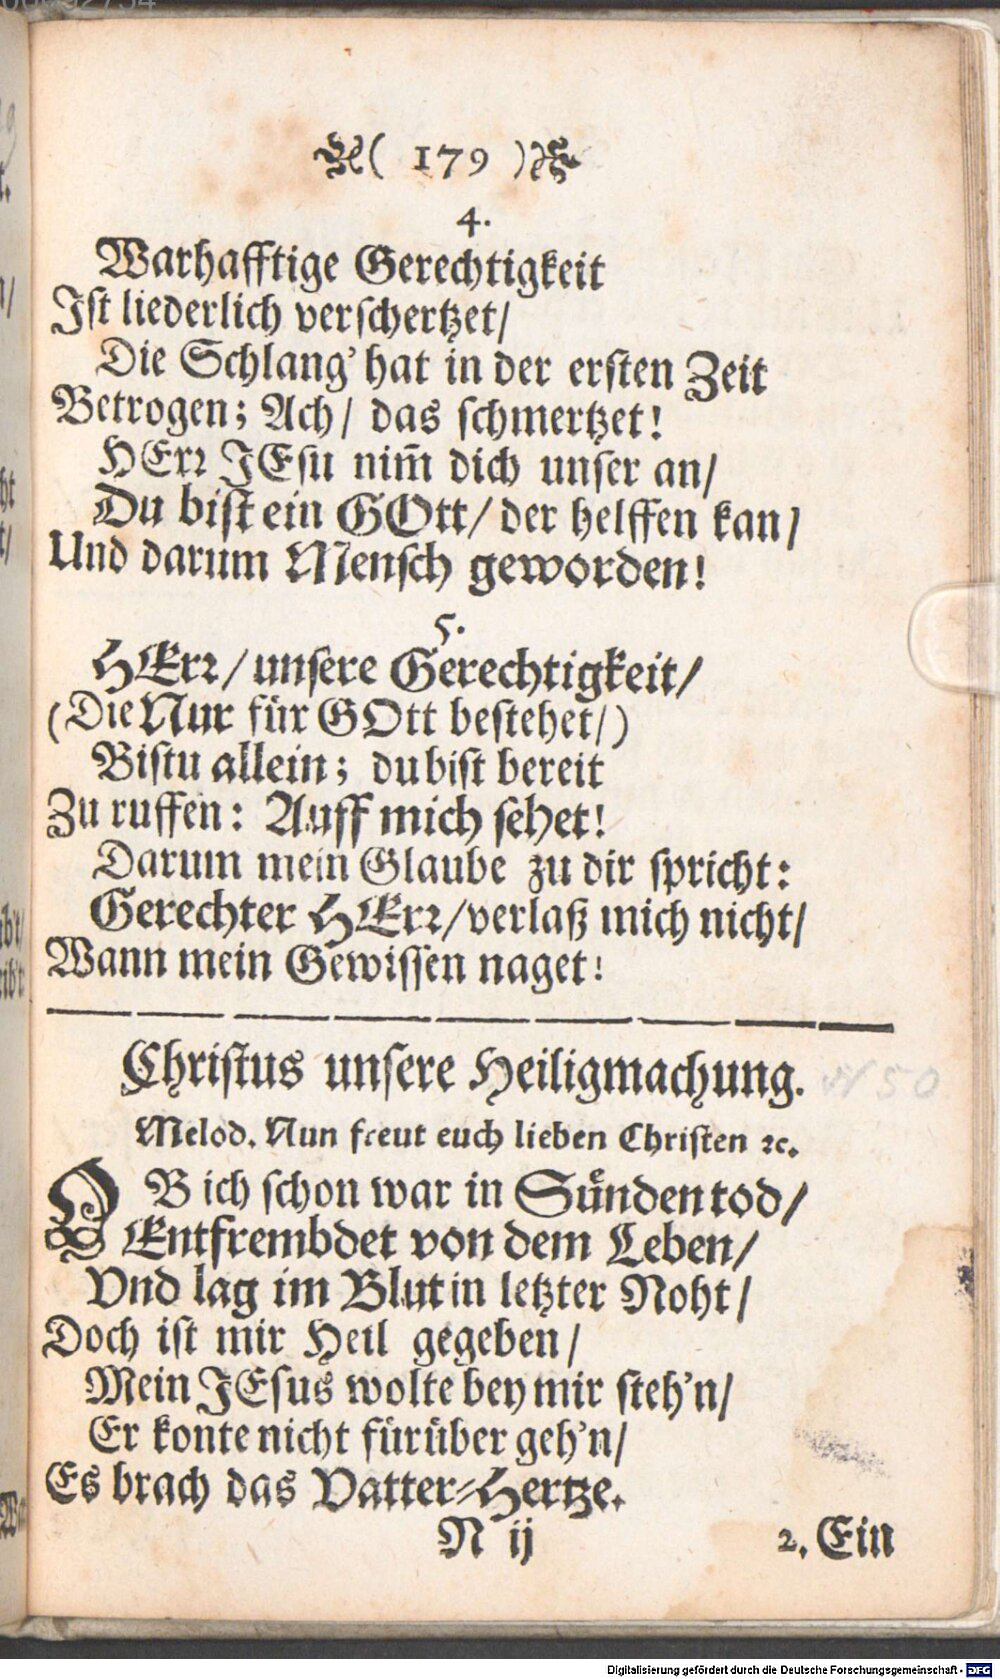 ( 179 )
4.
Warhafftige Gerechtigkeit
Ist liederlich verschertzet/
Die Schlang' hat in der ersten Zeit
Betrogen; Ach/ das schmertzet!
HErr JEsu nim̃ dich unser an/
Du bist ein GOtt/ der helffen kan/
Und darum Mensch geworden!
5.
HErr/ unsere Gerechtigkeit/
(Die Nur für GOtt bestehet/)
Bistu allein; du bist bereit
Zu ruffen: Auff mich sehet!
Darum mein Glaube zu dir spricht:
Gerechter HErr/ verlaß mich nicht/
Wann mein Gewissen naget!
Christus unsere Heiligmachung.
Melod. Nun freut euch lieben Christen ꝛc.
OB ich schon war in Sünden tod/
Entfrembdet von dem Leben/
Vnd lag im Blut in letzter Noht/
Doch ist mir Heil gegeben/
Mein JEsus wolte bey mir steh'n/
Er konte nicht fürüber geh'n/
Es brach das Vatter-Hertze.
N ij 2. Ein
Digitalisierung gefördert durch die Deutsche Forschungsgemeinschaft - DFG